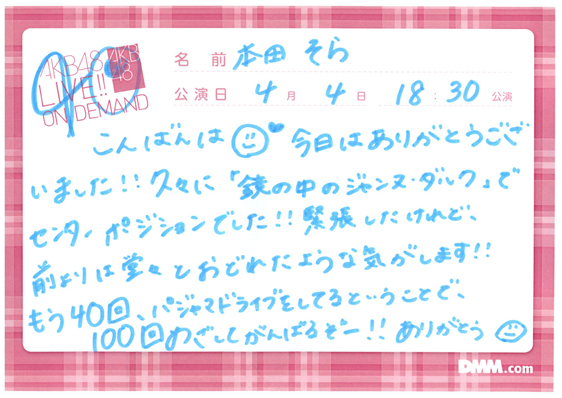 AKB48
LIVE!!
ON DEMAND
AKB
48
40
名前 本田 そら
公演日 4月 4日 18:30 公演
こんばんは 今日はありがとうござ
いました!! 久々に「鏡の中のジャンヌ・ダルク」で
センターポジションでした!! 緊張したけれど、
前よりは堂々とおどれたような気がします!!
もう40回、パジャマドライブをしてるということで、
100回めざしてがんばるぞー!! ありがとう
DMM.com